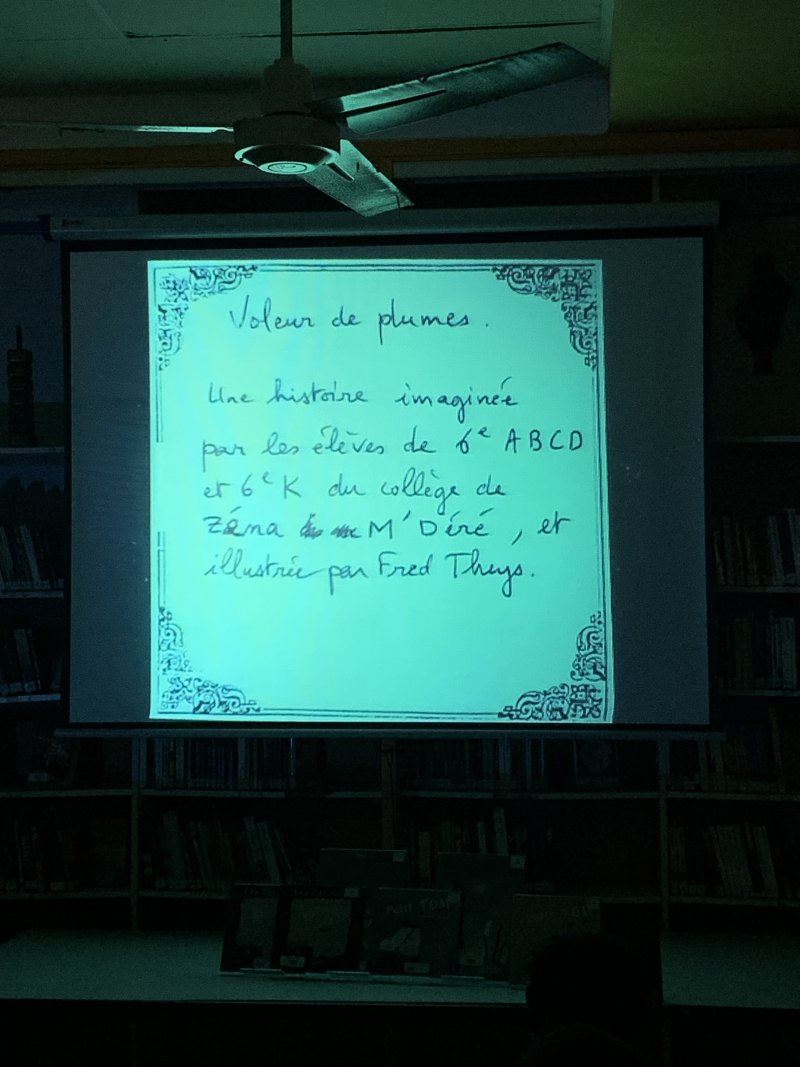 Voleur de plumes.
Une histoire imaginée
par les élèves de 6e A B C D
et 6e K du collège de
Zéna M'Déré, et
illustrée par Fred Theys.
Petit TOM